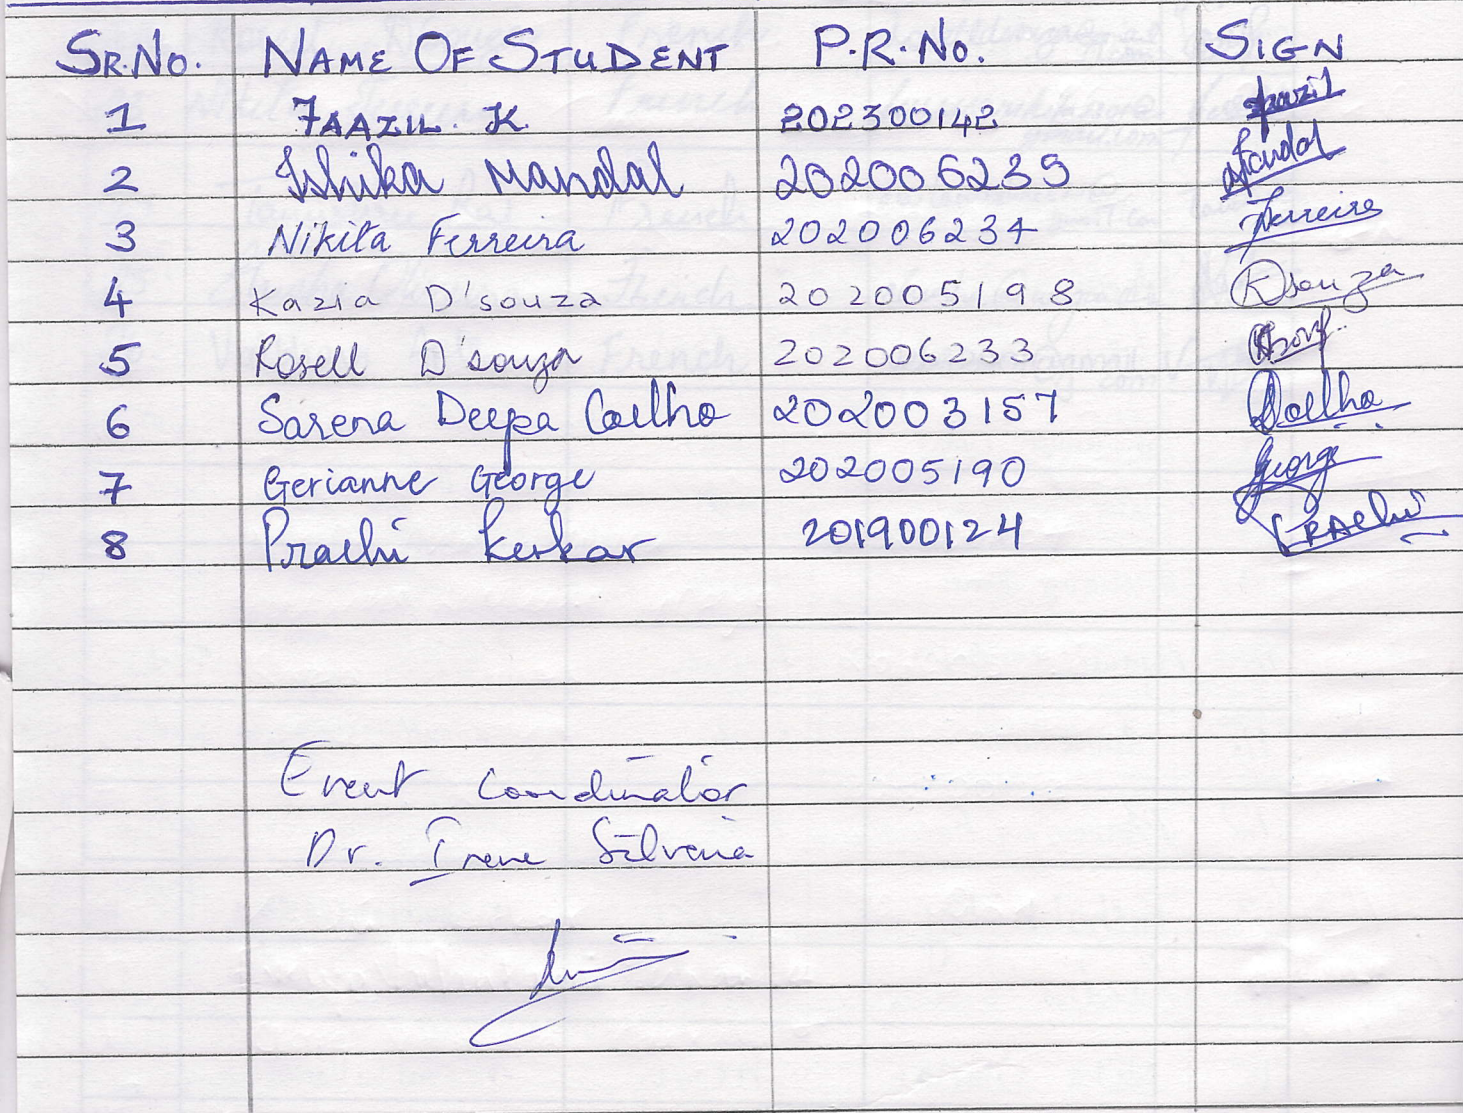 SR.NO. NAME OF STUDENT P.R.NO. SIGN
1 FAAZIL. K. 202300142 Faazil
2 Ishika Mandal 202006239 Mandal
3 Nikita Ferreira 202006234 Ferreira
4 Kazia D'souza 202005198 KDsouza
5 Rosell D'souza 202006233
6 Sarena Deepa Coelho 202003157 Coelho
7 Gerianne George 202005190 George
8 Prachi Kerkar 201900124 PRAchi
Event Coordinator
Dr. Irene Silveira